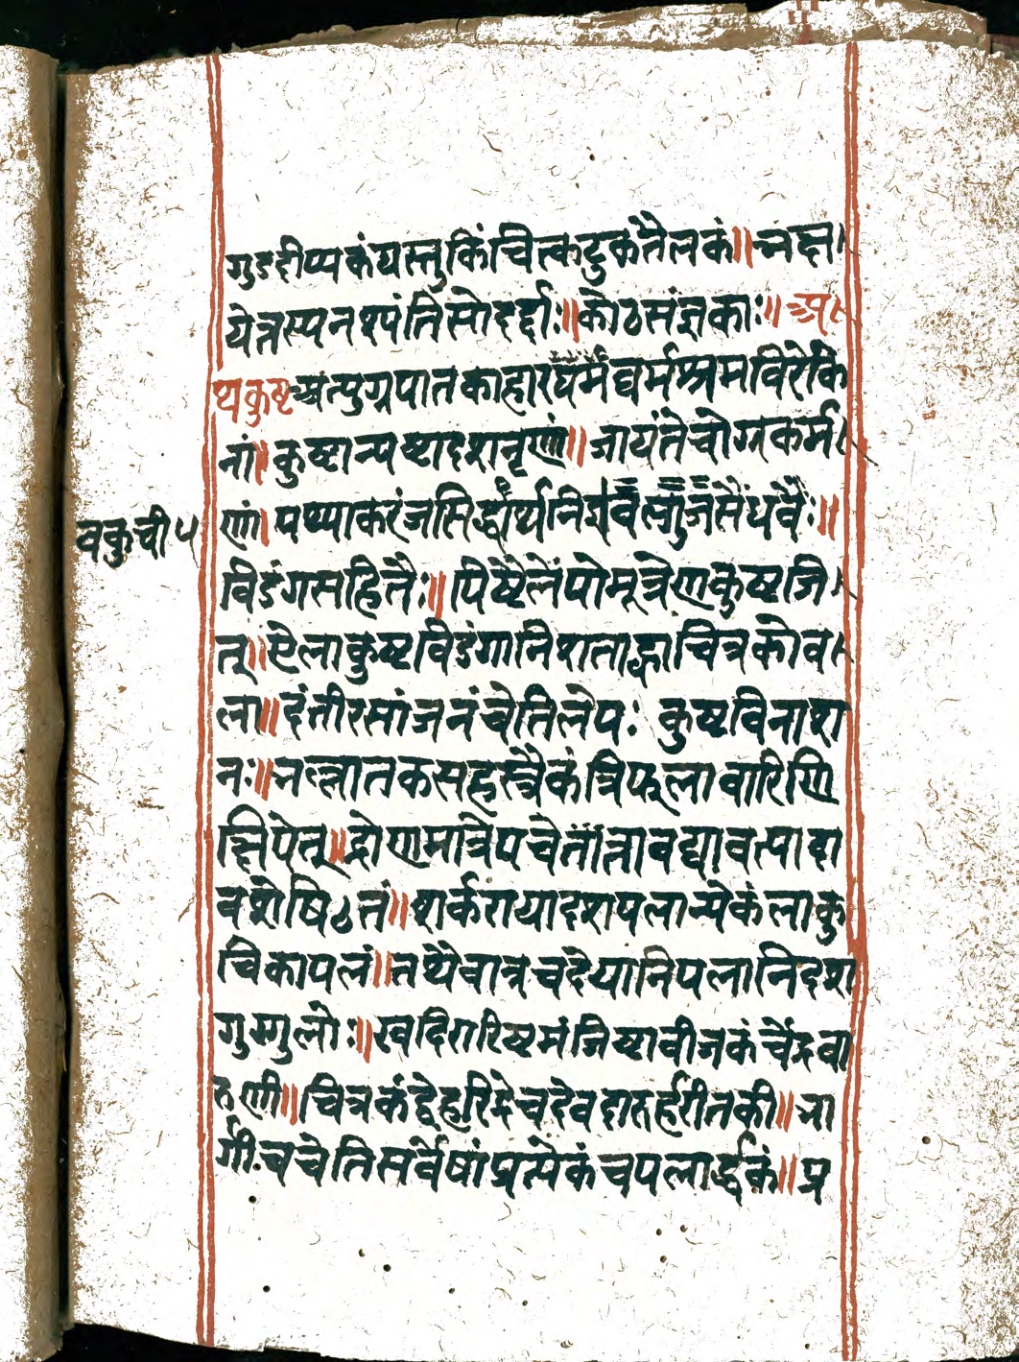 गुडदीप्पकंयस्तुकिंचित्कटुकंतैलकं॥भक्ष
येत्तस्यनश्यंतिसोदर्द्दाः॥कोठसंज्ञकाः॥अ
थकुष्टअत्युग्रपातकाहारघर्मघर्मश्रमविरेकि
नां॥कुष्टान्यष्टादशनृणां॥जायंतेचोग्रकर्म
णां॥पथ्याकरंजसिद्धार्थनिशावल्गुजसैंधवैः॥
वकुची५
विडंगसहितैः॥पिष्टैर्लेपोमूत्रेणकुष्टजि
त्॥ऐलाकुष्टविडंगानिशताह्वाचित्रकोव
ला॥दंतीरसांजनंचेतिलेपः कुष्टविनाश
नः॥भल्लातकसहस्त्रैकंत्रिफलावारिणि
क्षिपेत्॥द्रोणमात्रेपचेतांतावद्यावत्पादा
वशेषिठतं॥शर्करायादशपलान्येकंलाकु
चिकापलं॥तथैवात्रचदेयानिपलानिदश
गुग्गुलोः॥खदिरारिष्टमंजिष्टावीजकंचैंद्रवा
रुणी॥चित्रकंद्वेहरिद्रेचदेवदारुर्हरीतकी॥भा
र्गीचचेतिसर्वेषांप्रत्येकंचपलार्द्धकं॥प्र